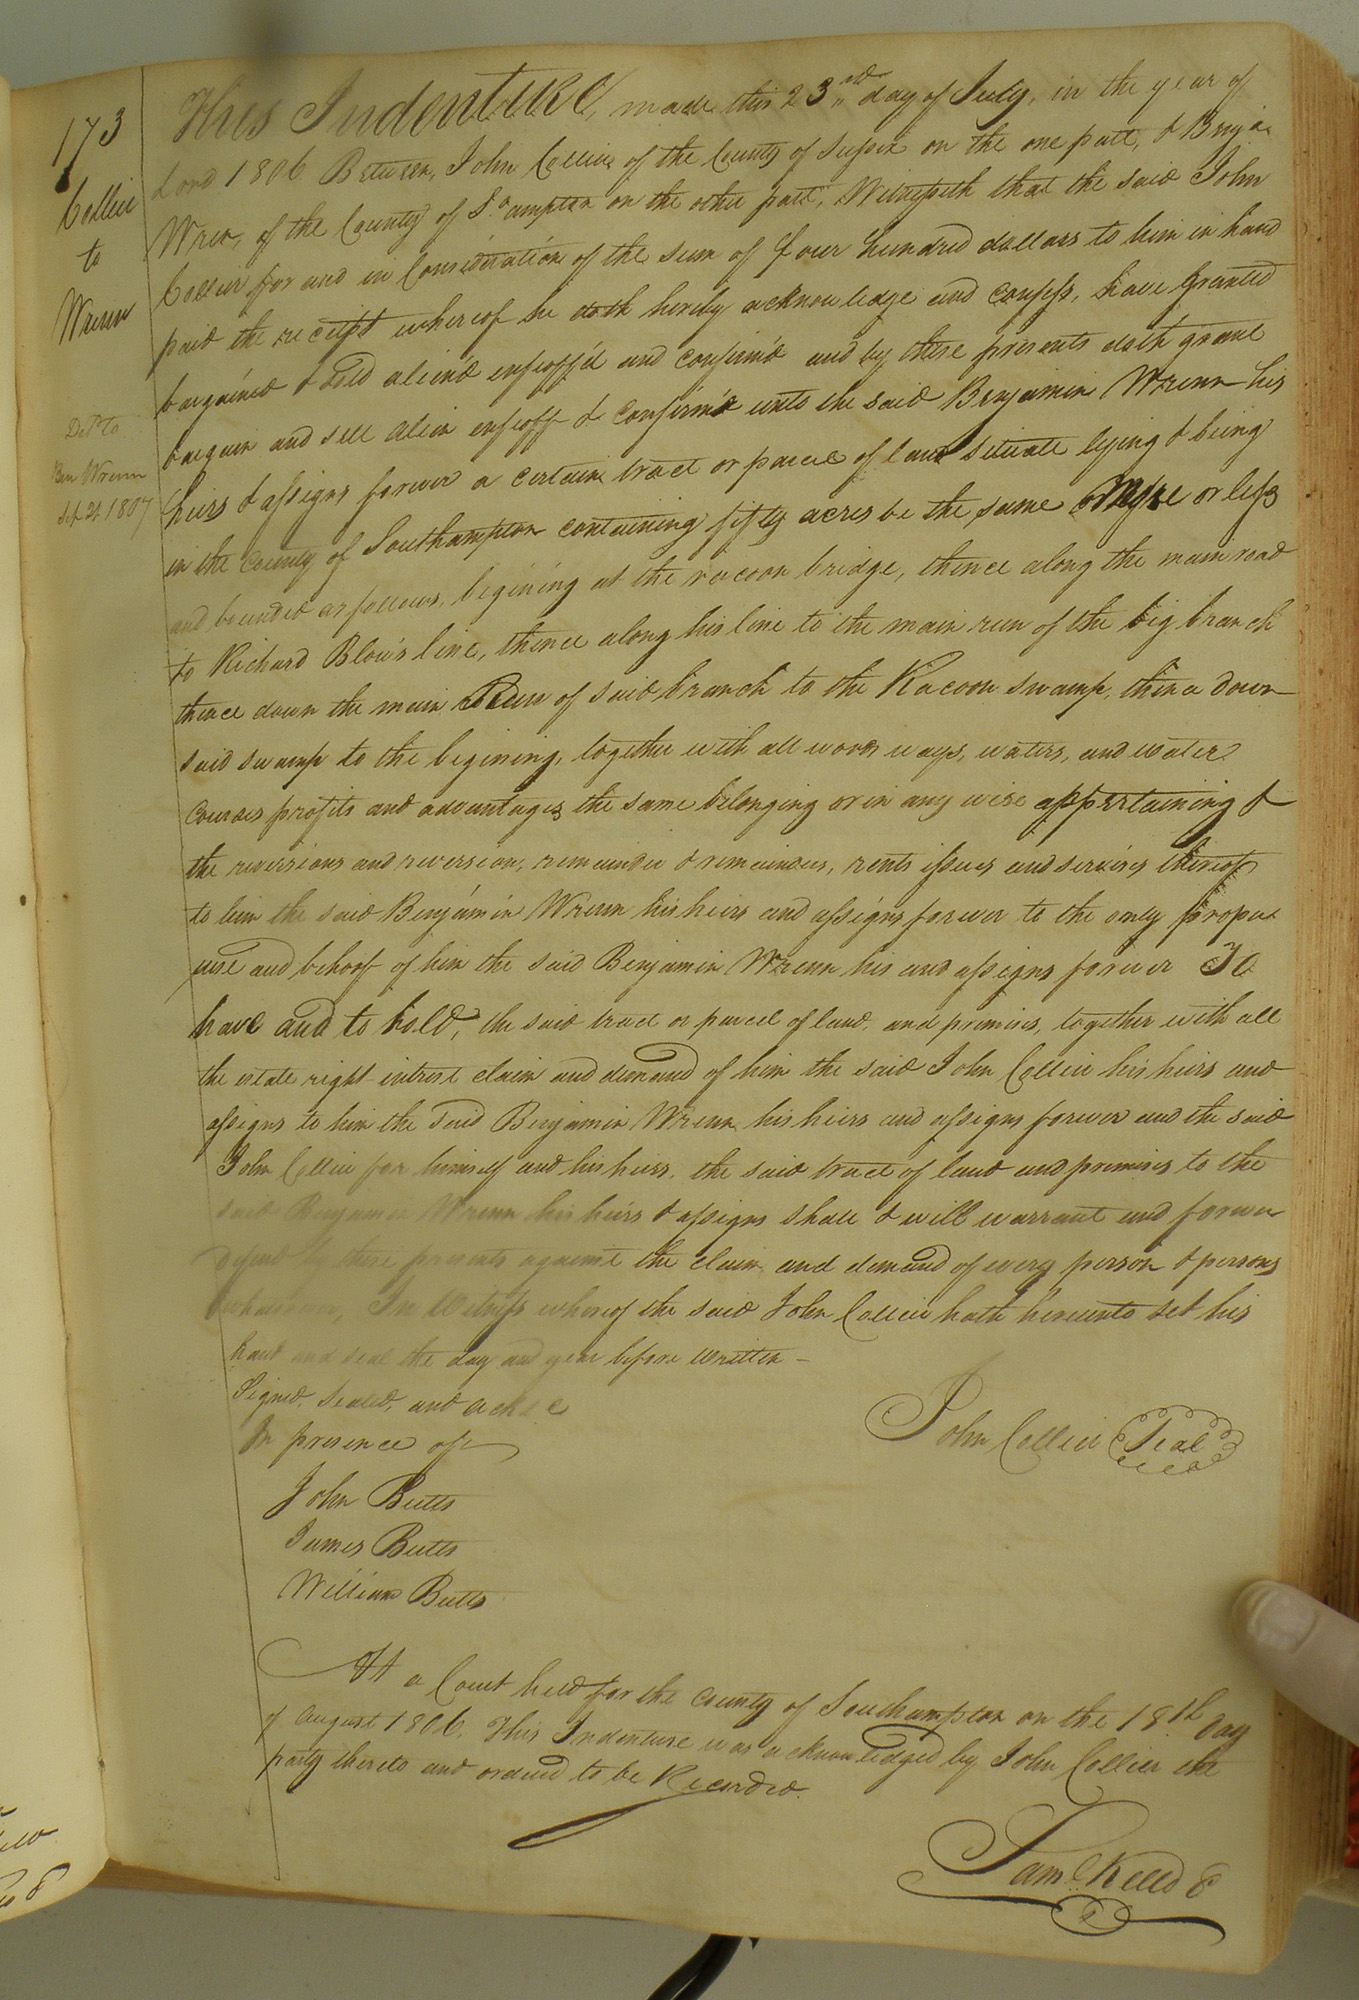 173
Collier
to
Wrenn
Deld to
Ben Wrenn
Sep 24 1807
This Indenture, made this 23rd day of July, in the year of
Lord 1806. Between, John Collier of the County of Sussex on the one part, & Benja.
Wren, of the County of So.ampton on the other part, Witnesseth that the said John
Collier for and in Consideration of the sum of four hundred dollars to him in hand
paid the receipt whereof he doth hereby acknowledge and confess, have Granted
bargained & sold alien'd enfeoff'd and confirm'd and by these presents doth grant
bargain and sell alien enfeoff & confirm'd unto the said Benjamin Wrenn his
heirs & assigns forever a certain tract or parcel of land situate lying & being
in the County of Southampton containing fifty acres be the same or more or less
and bounded as follows, begining at the racoon bridge, thence along the main road
to Richard Blow's line, thence along his line to the main run of the big branch
thence down the main run of said branch to the Racoon swamp, thence down
said swamp to the begining, together with all woods ways, waters, and water
courses profits and advantages the same belonging or in any wise appertaining &
the reversions and reversion, remainder & remainders, rents issues and services thereof
to him the said Benjamin Wrenn his heirs and assigns forever to the only proper
use and behoof of him the said Benjamin Wrenn his and assigns forever To
have and to hold, the said tract or parcel of land, and premises, together with all
the estate right intrest claim and demand of him the said John Collier his heirs and
assigns to him the said Benjamin Wrenn his heirs and assigns forever and the said
John Collier for himself and his heirs, the said tract of land and premises to the
said Benjamin Wrenn his heirs & assigns shall & will warrant and forever
defend by these presents against the claim and demand of every person & persons
whatsoever, In Witness whereof the said John Collier hath hereunto set his
hand and seal the day and year before written –
Signed, Sealed, and
In presence of
John Collier Seal
John Butts
James Butts
William Butts
At a Court held for the County of Southampton on the 18th day
of August 1806. This Indenture was acknowledged by John Collier the
party thereto and ordered to be Recorded.
Saml Kello C